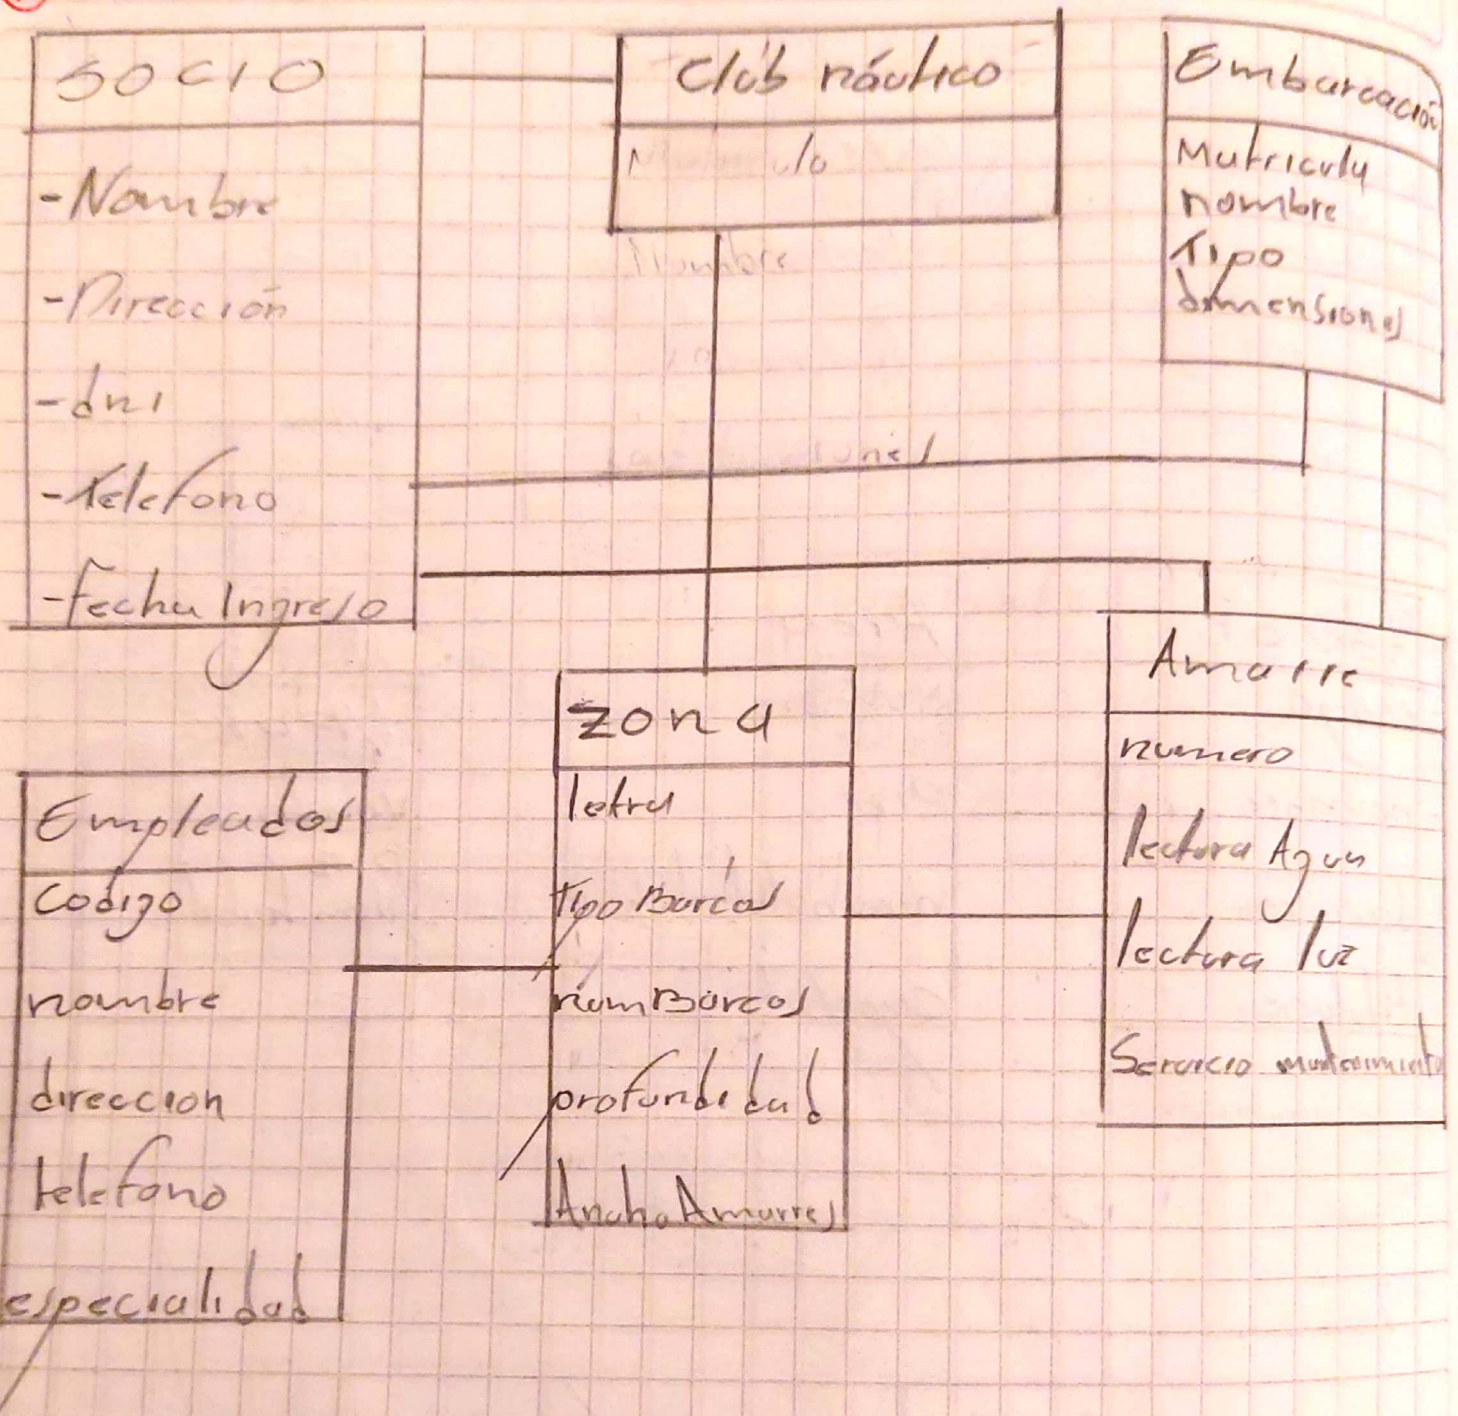 SOCIO
-Nombre
-Dirección
-dni
-Telefono
-Fecha Ingreso
Club náutico
Embarcación
Matricula
nombre
Tipo
dimensiones
Empleados
codigo
nombre
direccion
telefono
especialidad
zona
letra
Tipo Barcos
numBarcos
profundidad
Ancho Amarres
Amarre
numero
lectura Agua
lectura luz
Servicio mantenimiento